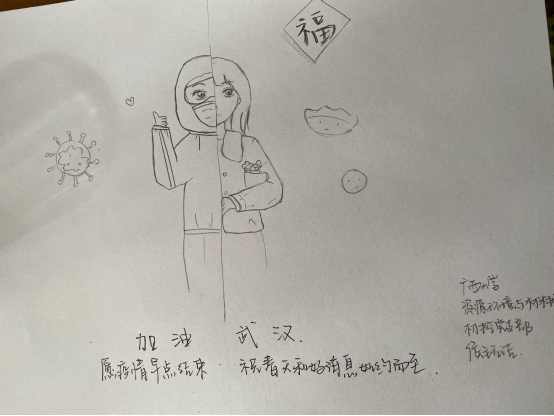 福
加油 武汉.
愿疫情早点结束 祝春天和好消息如约而至.
广西大学
资源环境与材料